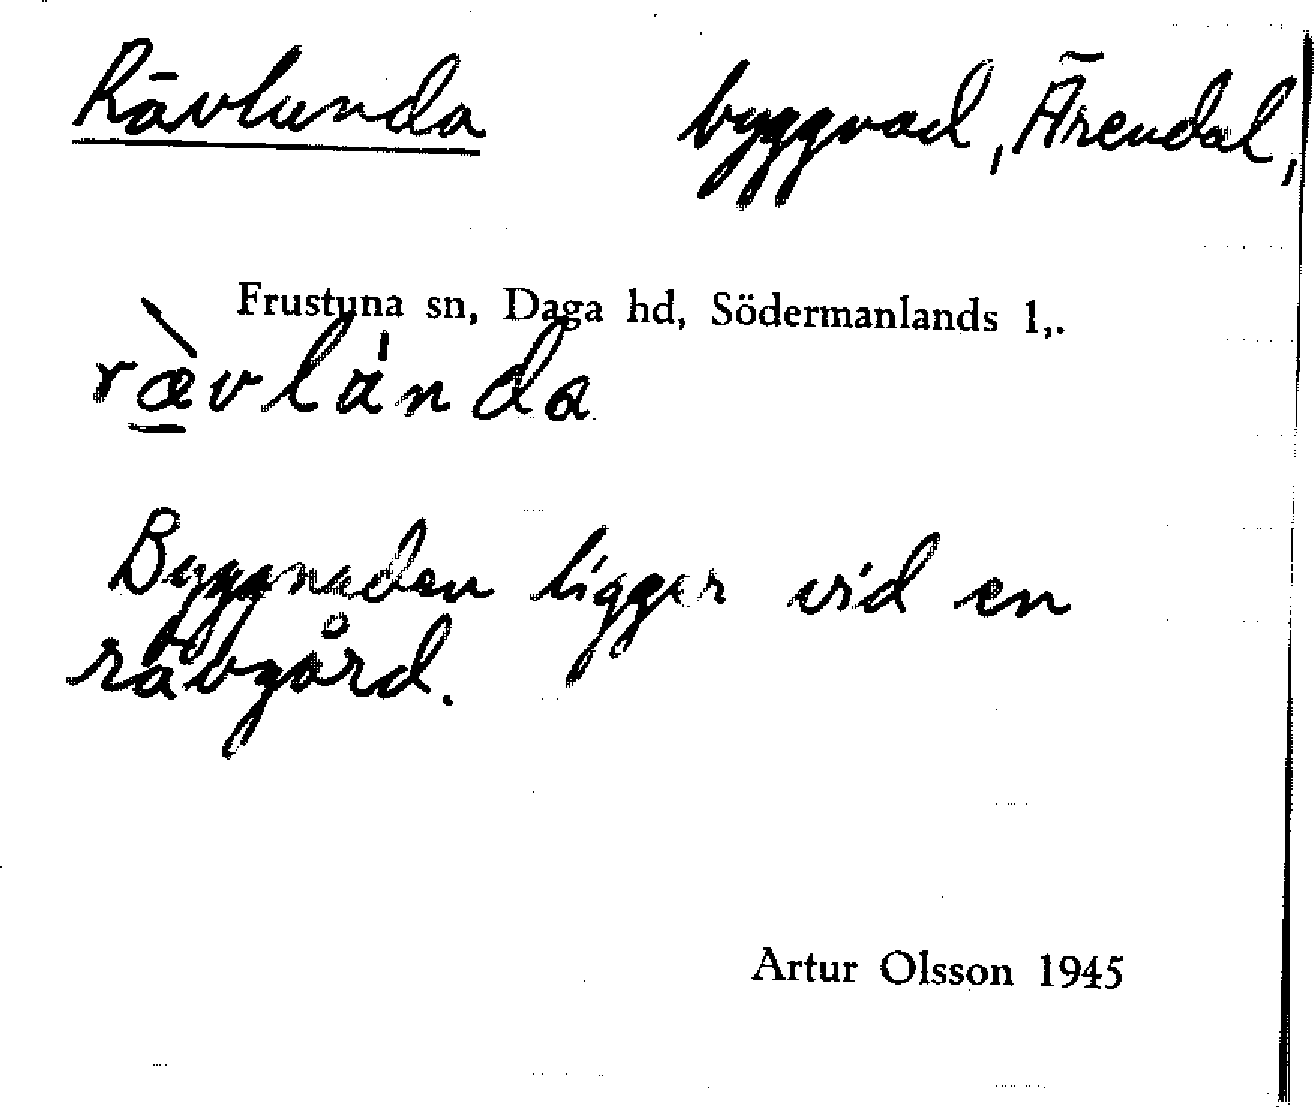 Rävlunda byggnad, Ärendal,
Frustuna sn, Daga hd, Södermanlands l,.
Byggnaden ligger vid en
rävgård.
Artur Olsson 1945